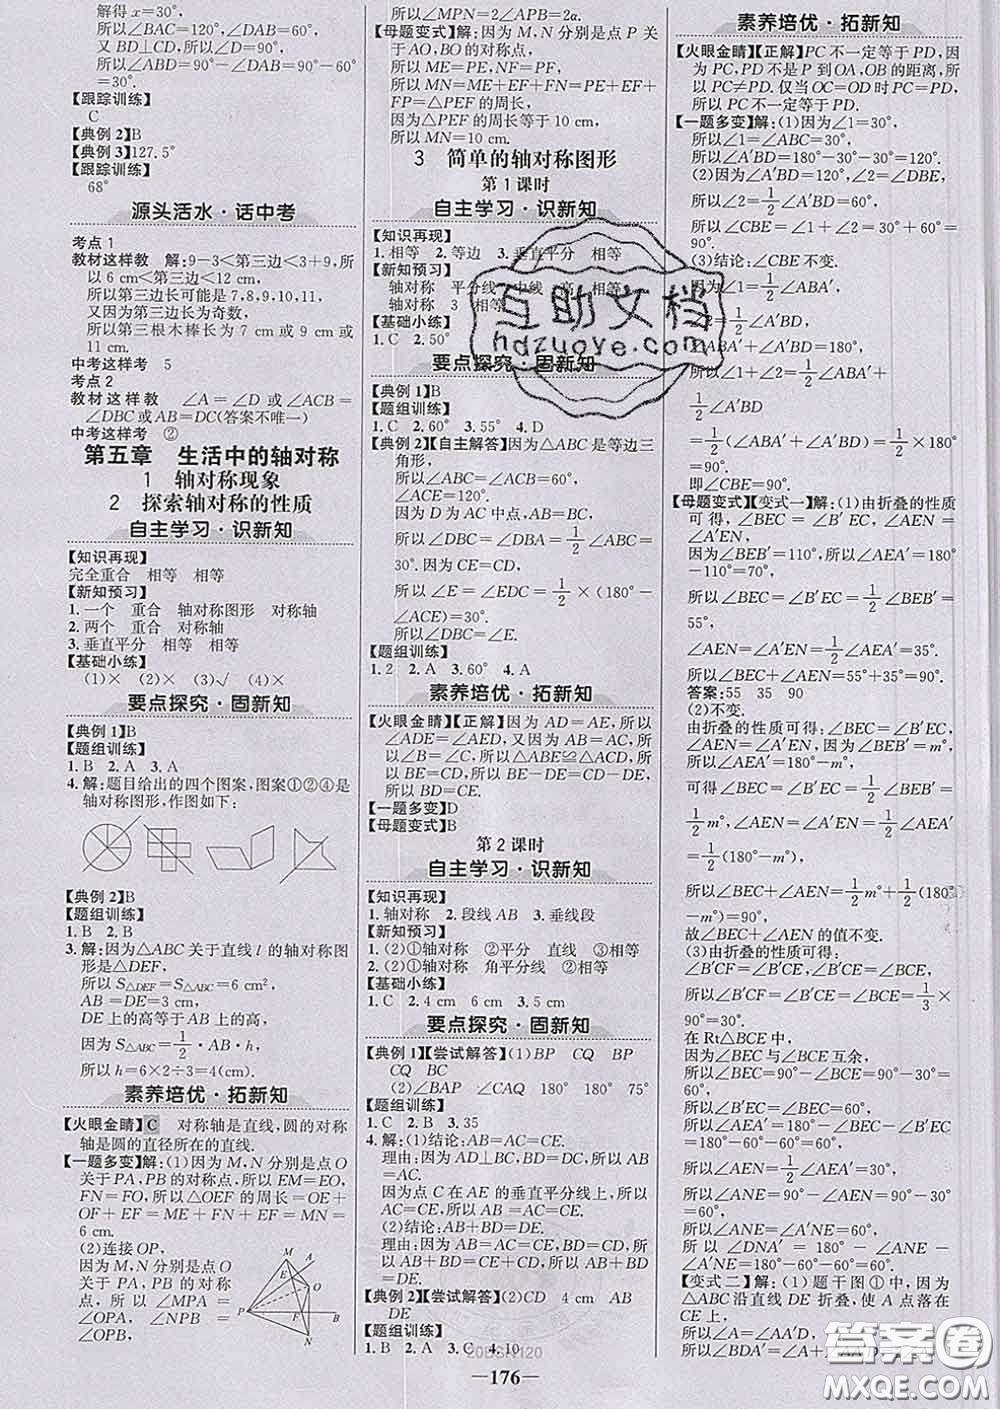 解得 x=30°.
所以∠BAC=120°,
又 BD⊥CD,所以∠D=90°,
所以∠ABD=90°-∠BAD=90°-60°
=30°.
【跟踪训练】
C
【典例 2】B
【典例 3】127.5°
【跟踪训练】
68°
源头活水·话中考
考点 1
教材这样教 解:9-3<第三边<3+9,所
以 6 cm<第三边<12 cm,
所以第三边长可能是 7,8,9,10,11,
又因为第三边长为奇数,
所以第三根木棒长为 7 cm 或 9 cm 或
11 cm.
中考这样考 5
考点 2
教材这样教 ∠A=∠D 或∠ACB=
∠DBC 或 AB=DC(答案不唯一)
中考这样考 ②
第五章 生活中的轴对称
1 轴对称现象
2 探索轴对称的性质
自主学习·识新知
【知识再现】
完全重合 相等 相等
【新知预习】
1.一个 重合 轴对称图形 对称轴
2.两个 重合 对称轴
3.垂直平分 相等 相等
【基础小练】
(1)× (2)× (3)√ (4)×
要点探究·固新知
【典例 1】B
【题组训练】
1.B 2.A 3.A
4.解:题目给出的四个图案,图案①②④是
轴对称图形,作图如下:
【典例 2】B
【题组训练】
1.B 2.B
3.解:因为△ABC 关于直线 l 的轴对称图
形是△DEF,
所以 S△DEF=S△ABC=6 cm²,
AB=DE=3 cm,
DE 上的高等于 AB 上的高,
因为 S△ABC=1/2·AB·h,
所以 h=6×2÷3=4(cm).
素养培优·拓新知
【火眼金睛】C 对称轴是直线,圆的对称
轴是圆的直径所在的直线.
【一题多变】解:(1)因为 M,N 分别是点 O
关于 PA,PB 的对称点,所以 EM=EO,
FN=FO,所以△OEF 的周长=OE+
OF+EF=ME+FN+EF=MN=
6 cm.
(2)连接 OP,
因为 M,N 分别是点 O
关于 PA,PB 的对称
点,所以∠MPA=
∠OPA,∠NPB=
∠OPB,
M
A
E
O
P
F
B
N
所以∠MPN=2∠APB=2α.
【母题变式】解:因为 M,N 分别是点 P 关
于 AO,BO 的对称点,
所以 ME=PE,NF=PF,
所以 MN=ME+EF+FN=PE+EF+
FP=△PEF 的周长,
因为△PEF 的周长等于 10 cm,
所以 MN=10 cm.
3 简单的轴对称图形
第 1 课时
自主学习·识新知
【知识再现】
1.相等 2.等边 3.垂直平分 相等
【新知预习】
轴对称 平分线 中线 高 相等
轴对称 3 相等
【基础小练】
1.C 2.50°
互助文档
hdzuoye.com
要点探究·固新知
【典例 1】B
【题组训练】
1.C 2.60° 3.55° 4.D
【典例 2】【自主解答】因为△ABC 是等边三
角形,
所以∠ABC=∠ACB=60°,
∠ACE=120°.
因为 D 为 AC 中点,AB=BC,
所以∠DBC=∠DBA=1/2∠ABC=
30°.因为 CE=CD,
所以∠E=∠EDC=1/2×(180°-
∠ACE)=30°.
所以∠DBC=∠E.
【题组训练】
1.2 2.A 3.60° 4.A
素养培优·拓新知
【火眼金睛】【正解】因为 AD=AE,所以
∠ADE=∠AED,又因为 AB=AC,所
以∠B=∠C,所以△ABE≌△ACD,所
以 BE=CD,所以 BE-DE=CD-DE,
所以 BD=CE.
【一题多变】D
【母题变式】B
第 2 课时
自主学习·识新知
【知识再现】
1.轴对称 2.段线 AB 3.垂线段
【新知预习】
1.(2)①轴对称 ②平分 直线 ③相等
2.(2)①轴对称 角平分线 ②相等
【基础小练】
1.C 2.4 cm 6 cm 3.5 cm
要点探究·固新知
【典例 1】【尝试解答】(1)BP CQ BP
CQ BC
(2)∠BAP ∠CAQ 180° 180° 75°
【题组训练】
1.C 2.B 3.35
4.解:(1)结论:AB=AC=CE.
理由:因为 AD⊥BC,BD=DC,所以 AB
=AC.
因为点 C 在 AE 的垂直平分线上,所以
AC=CE,所以 AB=AC=CE.
(2)结论:AB+BD=DE.
理由:因为 AB=AC=CE,BD=CD,所
以 AB+BD=CE+CD,
所以 AB+BD=DE.
【典例 2】【尝试解答】(2)CD 4 cm AB
DE
【题组训练】
1.B 2.A 3.C 4.10
—176—
素养培优·拓新知
【火眼金睛】【正解】PC 不一定等于 PD,因
为 PC,PD 不是 P 到 OA,OB 的距离,所
以 PC≠PD.仅当 OC=OD 时 PC=PD,
所以 PC 不一定等于 PD.
【一题多变】解:(1)因为∠1=30°,
所以∠1=∠ABC=30°,
所以∠A′BD=180°-30°-30°=120°.
(2)因为∠A′BD=120°,∠2=∠DBE,
所以∠2=1/2∠A′BD=60°,
所以∠CBE=∠1+∠2=30°+60°=
90°.
(3)结论:∠CBE 不变.
因为∠1=1/2∠ABA′,
∠2=1/2∠A′BD,
∠ABA′+∠A′BD=180°,
所以∠1+∠2=1/2∠ABA′+
1/2∠A′BD
=1/2(∠ABA′+∠A′BD)=1/2×180°
=90°.
即∠CBE=90°.
【母题变式】【变式一】解:(1)由折叠的性质
可得,∠BEC=∠B′EC,∠AEN=
∠A′EN,
因为∠BEB′=110°,所以∠AEA′=180°
-110°=70°,
所以∠BEC=∠B′EC=1/2∠BEB′=
55°,
∠AEN=∠A′EN=1/2∠AEA′=35°.
所以∠BEC+∠AEN=55°+35°=90°.
答案:55 35 90
(2)不变.
由折叠的性质可得:∠BEC=∠B′EC,
∠AEN=∠A′EN,因为∠BEB′=m°,
所以∠AEA′=180°-m°,
可得∠BEC=∠B′EC=1/2∠BEB′=
1/2m°,∠AEN=∠A′EN=1/2∠AEA′
=1/2(180°-m°),
所以∠BEC+∠AEN=1/2m°+1/2(180°
-m°)=90°.
故∠BEC+∠AEN 的值不变.
(3)由折叠的性质可得:
∠B′CF=∠B′CE,∠B′CE=∠BCE,
所以∠B′CF=∠B′CE=∠BCE=1/3×
90°=30°.
在 Rt△BCE 中,
因为∠BEC 与∠BCE 互余,
所以∠BEC=90°-∠BCE=90°-30°
=60°.
所以∠B′EC=∠BEC=60°,
所以∠AEA′=180°-60°-60°=60°,
所以∠AEN=1/2∠AEA′=30°,
所以∠ANE=90°-∠AEN=90°-30°
=60°.
所以∠ANE=∠A′NE=60°,
所以∠DNA′=180°-∠ANE-
∠A′NE=180°-60°-60°=60°.
【变式二】解:(1)题干图①中,因为
△ABC 沿直线 DE 折叠,使 A 点落在
CE 上,
答案圈
MXQE.COM